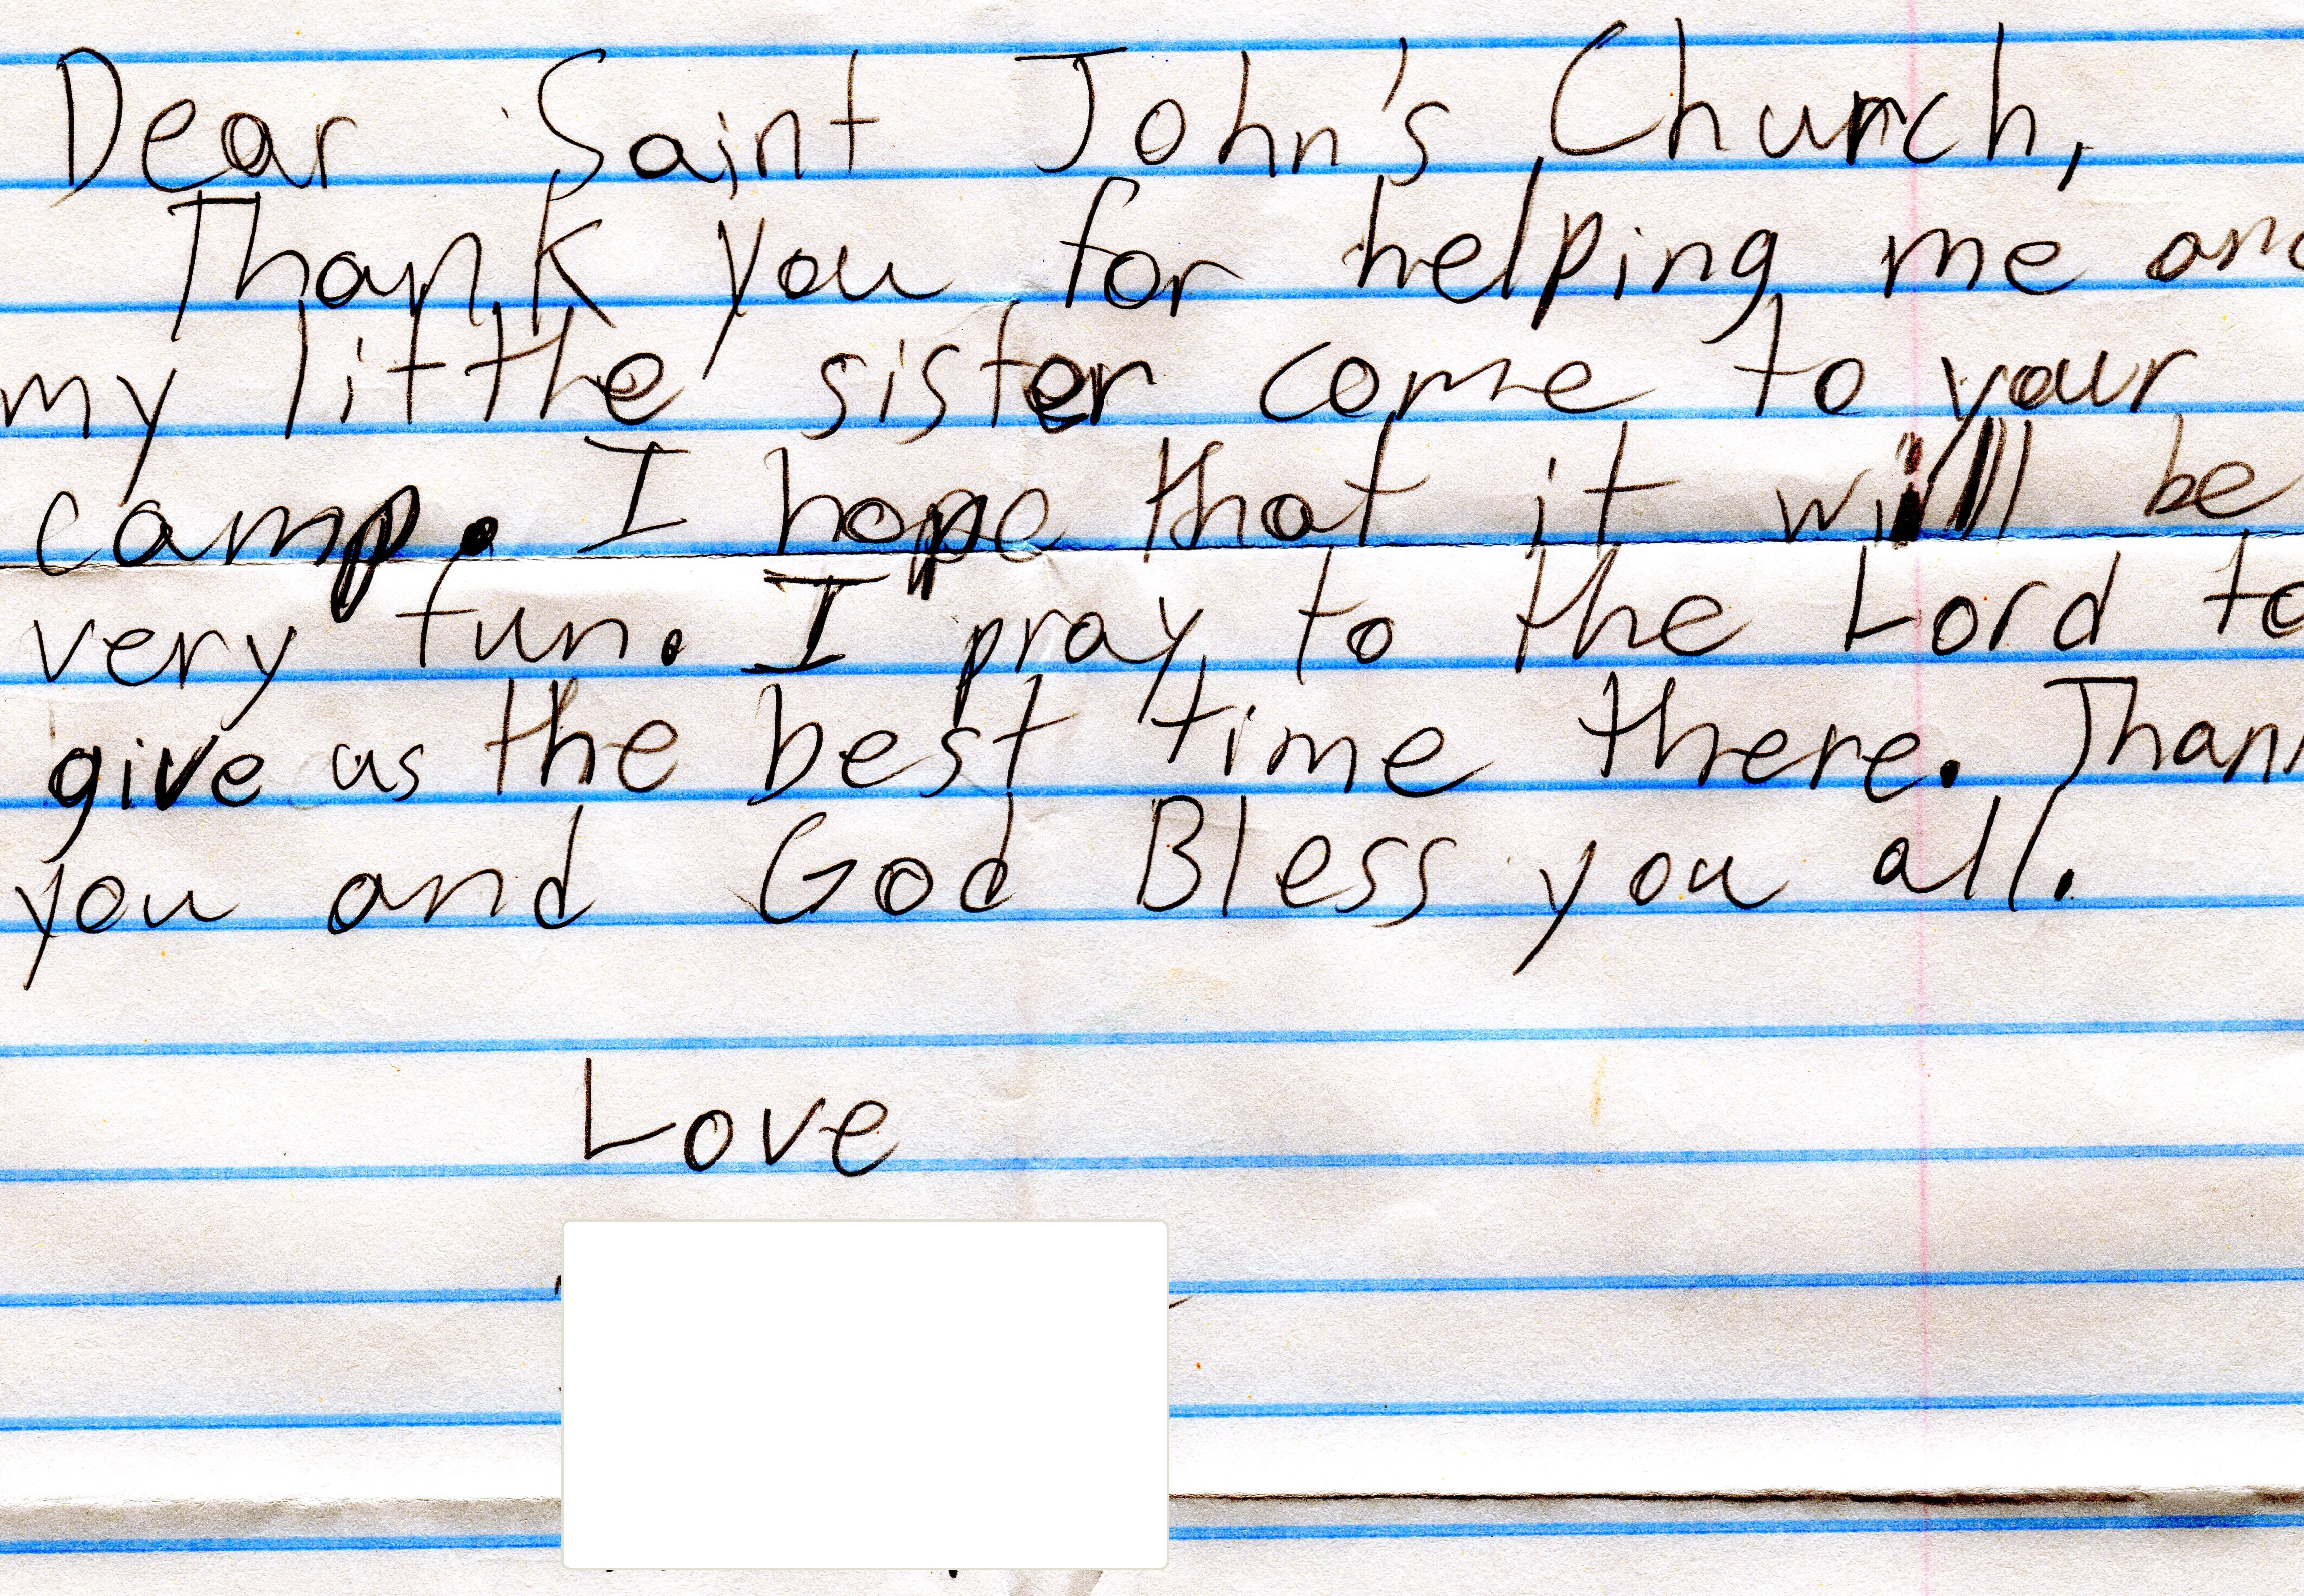 Dear Saint John's Church,
Thank you for helping me and
my litthe sister come to your
camp. I hope that it will be
very fun. I pray to the Lord to
give us the best time there. Thank
you and God Bless you all.
Love